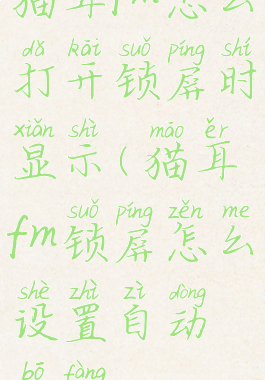 猫耳fm怎么
dǎ kāi suǒ píng shí
打开锁屏时
xiǎn shì māo ěr
显示(猫耳
suǒ píng zěn me
fm锁屏怎么
shè zhì zì dòng
设置自动
bō fàng